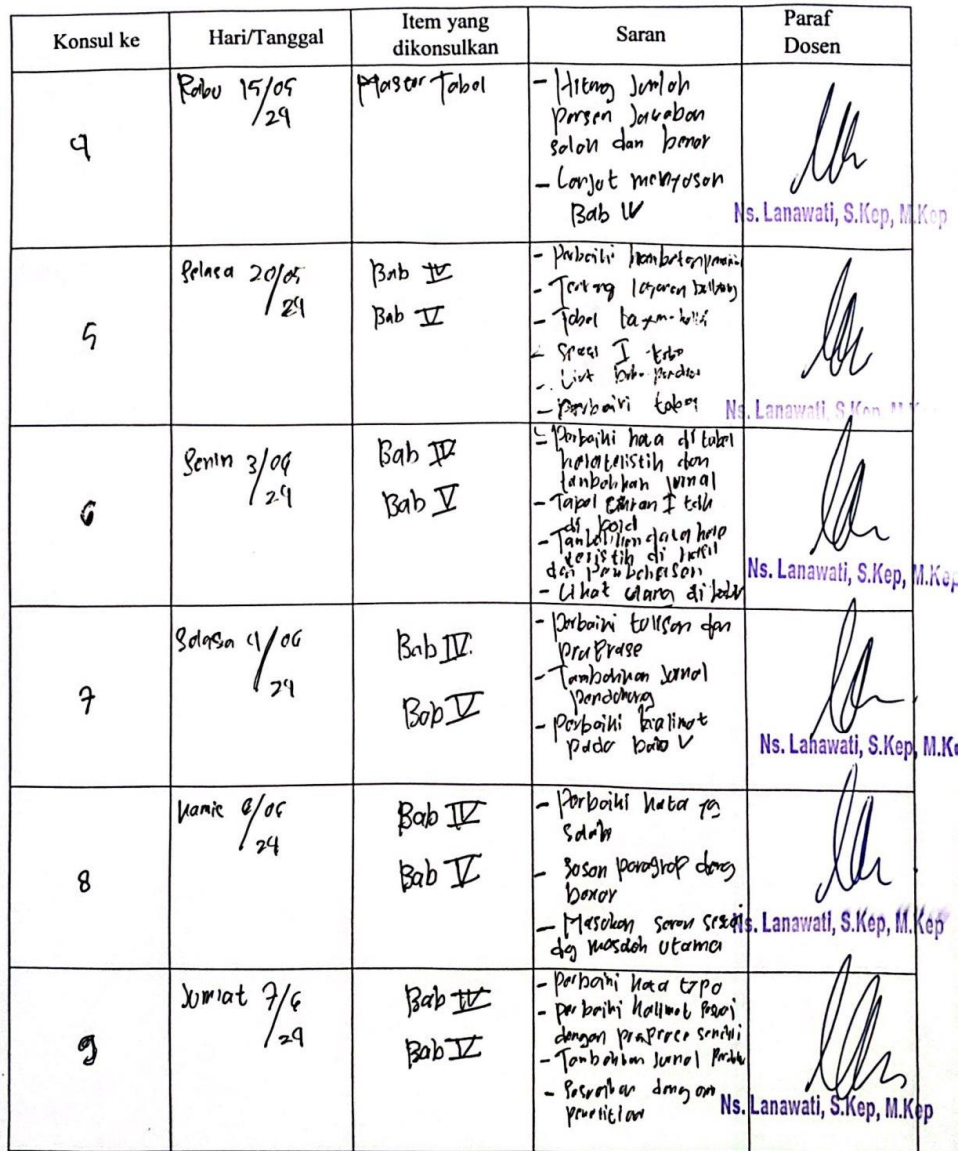 Konsul ke
Hari/Tanggal
Item yang
dikonsulkan
Saran
Paraf
Dosen
4
Rabu 15/05
/24
Master Tabel
- Hitung Jumlah
persen Jawaban
salah dan benar
- Lanjut menyusun
Bab IV
Ns. Lanawati, S.Kep, M.Kep
5
Selasa 20/05
/24
Bab IV
Bab V
- Perbaiki
- Tentang
- Tabel
- Spasi I
- List
- Perbaiki tabel
Ns. Lanawati, S.Kep, M
6
Senin 3/06
/24
Bab IV
Bab V
- Perbaiki kata di tabel
dan
tambahkan jurnal
- Tabel
di
- Tambahkan
di hasil
dan pembahasan
- Lihat ulang di
Ns. Lanawati, S.Kep, M.Kep
7
Selasa 4/06
/24
Bab IV
Bab V
- Perbaiki tulisan dan
praFrase
- Tambahkan Jurnal
pendukung
- Perbaiki kalimat
pada bab V
Ns. Lanawati, S.Kep, M.Ke
8
Kamis 6/06
/24
Bab IV
Bab V
- Perbaiki kata yg
Salah
- Susun paragrap deng
benar
- Masukan saran sesuai
dg masalah utama
Ns. Lanawati, S.Kep, M.Kep
9
Jumat 7/6
/24
Bab IV
Bab V
- Perbaiki kata typo
- perbaiki kalimat
dengan sendiri
- Tambahkan Jurnal
- Sesuaikan dengan
penelitian
Ns. Lanawati, S.Kep, M.Kep